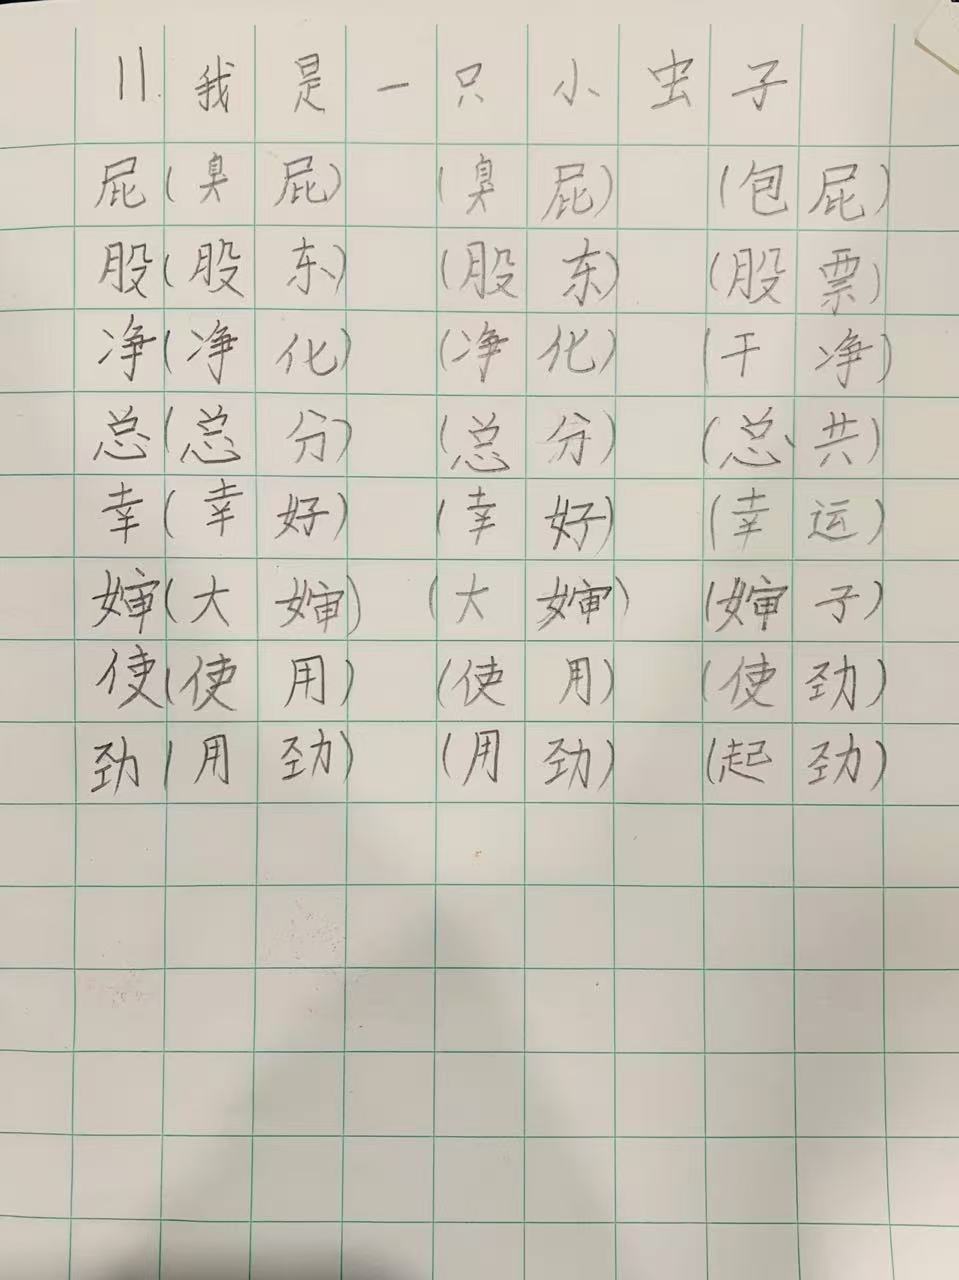 11 我是一只小虫子
屁(臭屁) (臭屁) (包屁)
股(股东) (股东) (股票)
净(净化) (净化) (干净)
总(总分) (总分) (总共)
幸(幸好) (幸好) (幸运)
婶(大婶) (大婶) (婶子)
使(使用) (使用) (使劲)
劲(用劲) (用劲) (起劲)